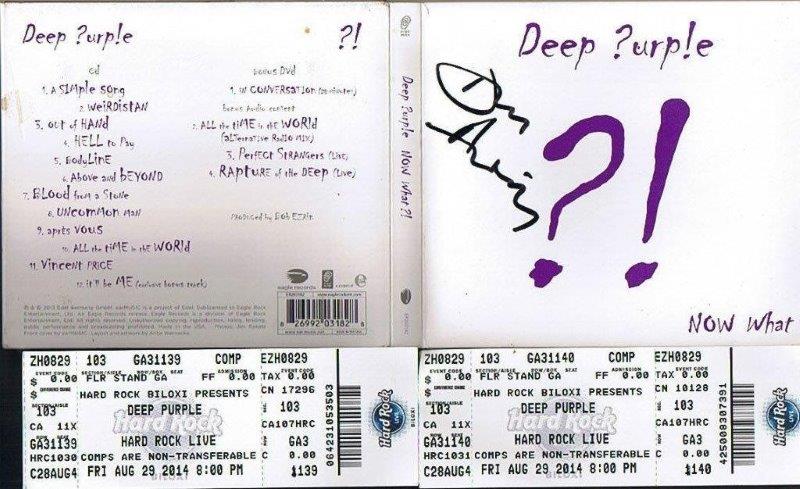 Deep ?urp!e
?!
CD
1. A SIMPLE SONG
2. WEIRDISTAN
3. OUT OF HAND
4. HELL to Pay
5. BodyLINE
6. Above and BEYOND
7. BLOOD from A Stone
8. UNCOMMON MAN
9. après vous
10. ALL the tiME in the WORLd
11. VINCENT PRICE
12. it'll be ME (exclusive bonus track)
BONUS DVD
1. IN CONVERSATION
Bonus Audio content
2. ALL the tiME in the WORLd
(ALterNAtive RAdIO MIX)
3. PerfECT STRANGers (Live)
4. RAPTURE of the DEEP (Live)
PRODUCED by BOB EZRIN
eagle records
8 26992 03182 8
Deep ?urp!e NOW What?!
Deep ?urp!e
?!
NOW What
ZH0829 103 GA31139 COMP EZH0829
EVENT CODE SECTION/AISLE ROW/BOX SEAT
$ 0.00 FLR STAND GA FF 0.00 TAX 0.00
$ 0.00 HARD ROCK BILOXI PRESENTS CN 17296
103 DEEP PURPLE 103
CA 11X Hard Rock CA107HRC
GA31139 HARD ROCK LIVE GA3
HRC1030 COMPS ARE NON-TRANSFERABLE C 0.00
C28AUG4 FRI AUG 29 2014 8:00 PM 139
BILOXI
064231053503
ZH0829 103 GA31140 COMP EZH0829
EVENT CODE SECTION/AISLE ROW/BOX SEAT
$ 0.00 FLR STAND GA FF 0.00 TAX 0.00
$ 0.00 HARD ROCK BILOXI PRESENTS CN 10128
103 DEEP PURPLE 103
CA 11X Hard Rock CA107HRC
GA31140 HARD ROCK LIVE GA3
HRC1031 COMPS ARE NON-TRANSFERABLE C 0.00
C28AUG4 FRI AUG 29 2014 8:00 PM 140
BILOXI
425008307391